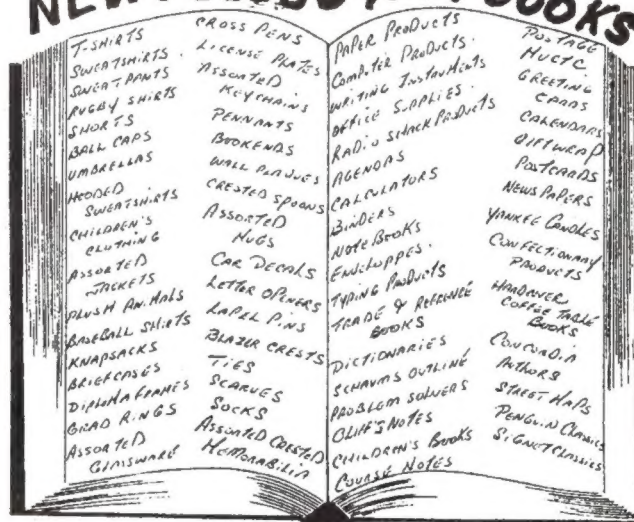 BOOKS
T-SHIRTS
SWEATSHIRTS
SWEATPANTS
RUGBY SHIRTS
SHORTS
BALL CAPS
UMBRELLAS
HOODED
SWEATSHIRTS
CHILDREN'S
CLOTHING
ASSORTED
JACKETS
PLUSH ANIMALS
BASEBALL SHIRTS
KNAPSACKS
BRIEFCASES
DIPLOMA FRAMES
GRAD RINGS
ASSORTED
GLASSWARE
CROSS PENS
LICENSE PLATES
ASSORTED
KEYCHAINS
PENNANTS
BOOKENDS
WALL PLAQUES
CRESTED SPOONS
ASSORTED
MUGS
CAR DECALS
LETTER OPENERS
LAPEL PINS
BLAZER CRESTS
TIES
SCARVES
SOCKS
ASSORTED CRESTED
MEMORABILIA
PAPER PRODUCTS
COMPUTER PRODUCTS.
WRITING INSTRUMENTS
OFFICE SUPPLIES.
RADIO SHACK PRODUCTS
AGENDAS
CALCULATORS
BINDERS
NOTE BOOKS
ENVELOPPES.
TYPING PRODUCTS
TRADE & REFERENCE
BOOKS
DICTIONARIES
SCHAUMS OUTLINE
PROBLEM SOLVERS
CLIFF'S NOTES
CHILDREN'S BOOKS
COURSE NOTES
POSTAGE
GREETING
CARDS
CALENDARS
GIFTWRAP
POSTCARDS
NEWSPAPERS
YANKEE CANDLES
CONFECTIONARY
PRODUCTS
HARDCOVER
COFFEE TABLE
BOOKS
CONCORDIA
AUTHORS
STREET MAPS
PENGUIN CLASSICS
SIGNET CLASSICS